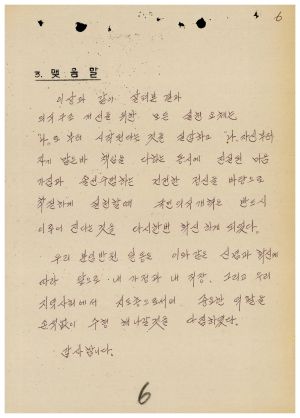 6
3. 맺음말
이상과 같이 살펴본 결과
의식구조 개선을 위한 모든 실천 과제는
"나"로 부터 시작된다는 것을 실감하고 나 자신부터
자기 맡은바 책임을 다하는 동시에 진실된 마음
가짐과 솔선수범하는 건전한 정신을 바탕으로
착실하게 실천할때 국민의식개혁은 반드시
이루어 진다는것을 다시한번 확신 하게 되었다.
우리 분임반원 일동은 이와같은 신념과 확신에
따라 앞으로 내 가정과 내 직장, 그리고 우리
지역사회에서 지도층으로서의 중요한 역할을
손색없이 수행 해나갈것을 다짐하였다.
감사합니다.
6